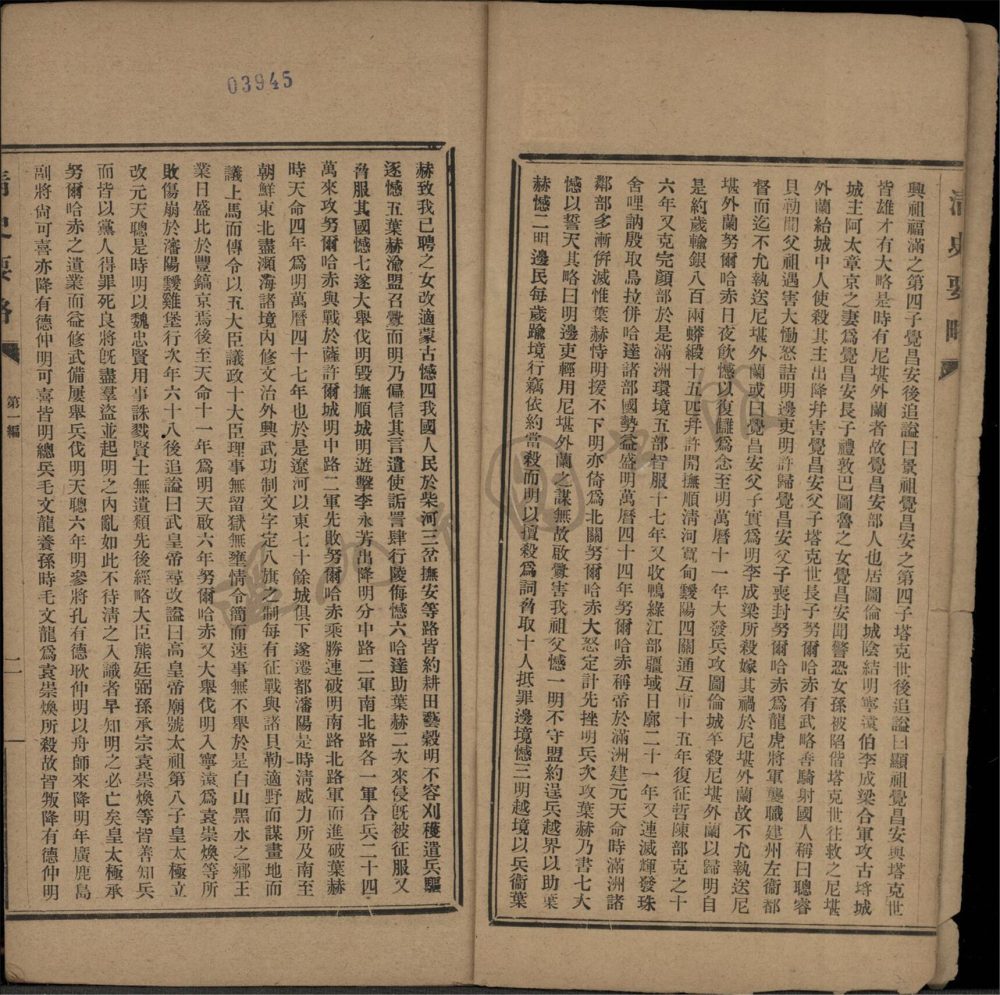 03945
清史要略
興祖福滿之第四子覺昌安後追謚曰景祖覺昌安之第四子塔克世後追謚曰顯祖覺昌安與塔克世
皆雄才有大略是時有尼堪外蘭者故覺昌安部人也居圖倫城陰結明寧遠伯李成梁合軍攻古埒城
城主阿太章京之妻爲覺昌安長子禮敦巴圖魯之女覺昌安聞警恐女孫被陷偕塔克世往救之尼堪
外蘭紿城中人使殺其主出降幷害覺昌安父子塔克世長子努爾哈赤有武略善騎射國人稱曰聰睿
貝勒聞父祖遇害大慟怒詰明邊吏明許歸覺昌安父子喪封努爾哈赤爲龍虎將軍襲職建州左衞都
督而迄不允執送尼堪外蘭或曰覺昌安父子實爲明李成梁所殺嫁其禍於尼堪外蘭故不允執送尼
堪外蘭努爾哈赤日夜飲憾以復讎爲念至明萬曆十一年大發兵攻圖倫城卒殺尼堪外蘭以歸明自
是約歲輸銀八百兩蟒緞十五匹幷許開撫順淸河寬甸靉陽四關通互市十五年復征哲陳部克之十
六年又克完顏部於是滿洲環境五部皆服十七年又收鴨綠江部疆域日廓二十一年又連滅輝發珠
舍哩訥殷取烏拉併哈達諸部國勢益盛明萬曆四十四年努爾哈赤稱帝於滿洲建元天命時滿洲諸
鄰部多漸倂滅惟葉赫恃明援不下明亦倚爲北關努爾哈赤大怒定計先挫明兵次攻葉赫乃書七大
憾以誓天其略曰明邊吏輕用尼堪外蘭之謀無故啟釁害我祖父憾一明不守盟約逞兵越界以助葉
赫憾二明邊民每歲踰境行竊依約當殺而明以擅殺爲詞脅取十人抵罪邊境憾三明越境以兵衞葉
赫致我已聘之女改適蒙古憾四我國人民於柴河三岔撫安等路皆約耕田藝穀明不容刈穫遣兵驅
逐憾五葉赫渝盟召釁而明乃偏信其言遣使詬詈肆行陵侮憾六哈達助葉赫二次來侵旣被征服又
脅服其國憾七遂大舉伐明毀撫順城明遊擊李永芳出降明分中路二軍南北路各一軍合兵二十四
萬來攻努爾哈赤與戰於薩許爾城明中路二軍先敗努爾哈赤乘勝連破明南路北路軍而進破葉赫
時天命四年爲明萬曆四十七年也於是遼河以東七十餘城俱下遂遷都瀋陽是時淸威力所及南至
朝鮮東北盡瀕海諸境內修文治外興武功制文字定八旗之制每有征戰與諸貝勒適野而謀畫地而
議上馬而傳令以五大臣議政十大臣理事無留獄無壅情令簡而速事無不舉於是白山黑水之鄉王
業日盛比於豐鎬京焉後至天命十一年爲明天啟六年努爾哈赤又大舉伐明入寧遠爲袁崇煥等所
敗傷崩於瀋陽靉雞堡行次年六十八後追謚曰武皇帝尋改謚曰高皇帝廟號太祖第八子皇太極立
改元天聰是時明以魏忠賢用事誅戮賢士無遺類先後經略大臣熊廷弼孫承宗袁崇煥等皆善知兵
而皆以黨人得罪死良將旣盡羣盜並起明之內亂如此不待淸之入識者早知明之必亡矣皇太極承
努爾哈赤之遺業而益修武備屢舉兵伐明天聰六年明參將孔有德耿仲明以舟師來降明年廣鹿島
副將尙可喜亦降有德仲明可喜皆明總兵毛文龍養孫時毛文龍爲袁崇煥所殺故皆叛降有德仲明
清史要略
第一編
二